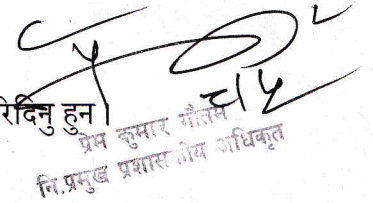 रिदिनु हुन ।
८१५
प्रेम कुमार गौतम
नि.प्रमुख प्रशासकीय अधिकृत